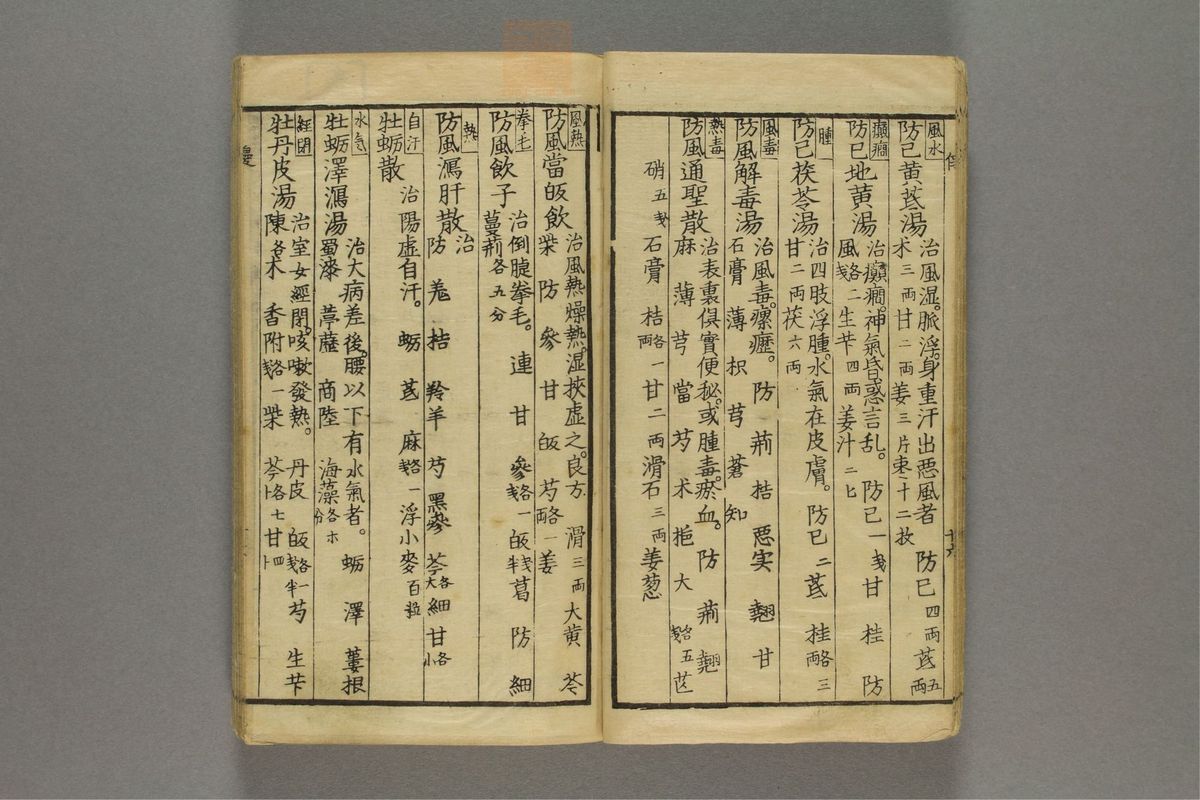 風水
防己黄茋湯
治風湿。脈浮。身重汗出悪風者 防已 四両 茋 五両
术 三両 甘 二両 姜 三片 枣 十二枚
癲癇
防已地黄湯
治癲癇。神氣昏惑言乱。 防己 一戔 甘 桂 防
風 各二戔 生芐 四両 姜汁 二匕
腫
防已茯苓湯
治四肢浮腫。水氣在皮膚。 防已 二 茋 桂 各三両
甘 二両 茯 六両
風毒
防風解毒湯
治風毒。瘰癧。 防 荊 桔 悪实 翹 甘
石膏 薄 枳 芎 蒼 知
熱毒
防風通聖散
治表裏俱實便秘。或腫毒。瘀血。 防 荊 翹
麻 薄 芎 當 芍 术 栀 大 各五戔 芒
硝 五戔 石膏 桔 各一両 甘 二両 滑石 三両 姜葱
風熱
防風當皈飲
治風熱燥熱。湿挾虚之。良方 滑 三両 大黄 芩
柴 防 參 甘 皈 芍 各一両 姜
拳毛
防風飲子
治倒睫拳毛。 連 甘 參 各一戔 皈 戔半 葛 防 細
蔓荊 各五分
熱
防風瀉肝散
治
防 羗 桔 羚羊 芍 黑參 芩 各大 細 甘 各小
自汗
牡蛎散
治陽虚自汗。 蛎 茋 麻 各一戔 浮小麥 百粒
水氣
牡蛎澤瀉湯
治大病差後。腰以下有水氣者。 蛎 澤 蔞根
蜀漆 葶藶 商陸 海藻 各
經閉
牡丹皮湯
治室女經閉。咳嗽發熱。 丹皮 皈 各一戔半 芍 生芐
陳 各 木 香附 各一戔 柴 芩 各七卜 甘 四卜